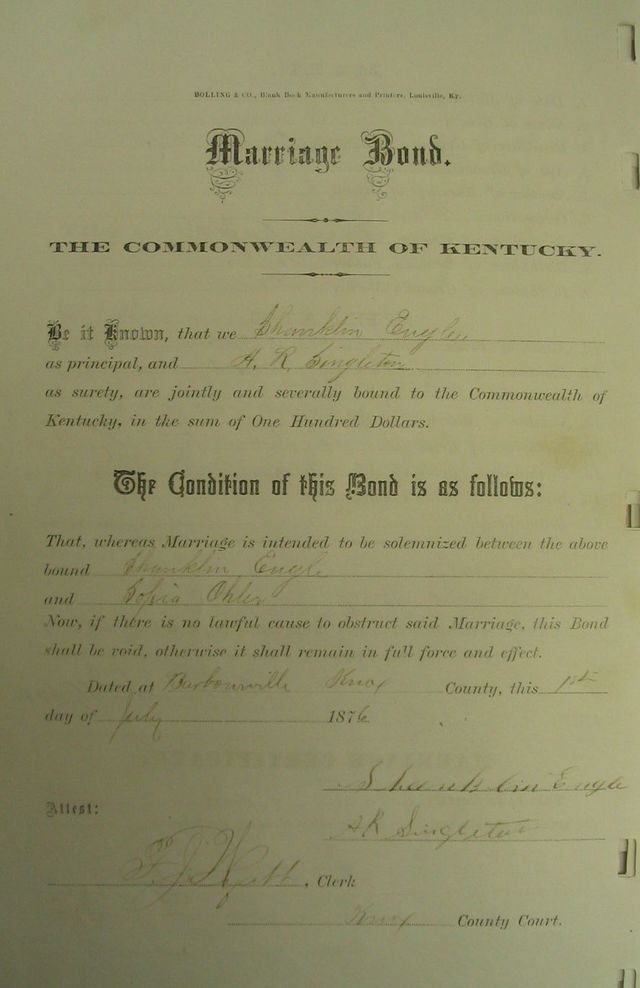 BOLLING & CO., Blank Book Manufacturers and Printers, Louisville, Ky.
Marriage Bond.
THE COMMONWEALTH OF KENTUCKY.
Be it Known, that we Shanklin Engle
as principal, and A. R. Singleton
as surety, are jointly and severally bound to the Commonwealth of
Kentucky, in the sum of One Hundred Dollars.
The Condition of this Bond is as follows:
That, whereas Marriage is intended to be solemnized between the above
bound Shanklin Engle
and Sofia Ohler
Now, if there is no lawful cause to obstruct said Marriage, this Bond
shall be void, otherwise it shall remain in full force and effect.
Dated at Barbourville Knox County, this 1st
day of July 1876
Shanklin Engle
Attest:
A R Singleton
F. J. , Clerk
Knox County Court.